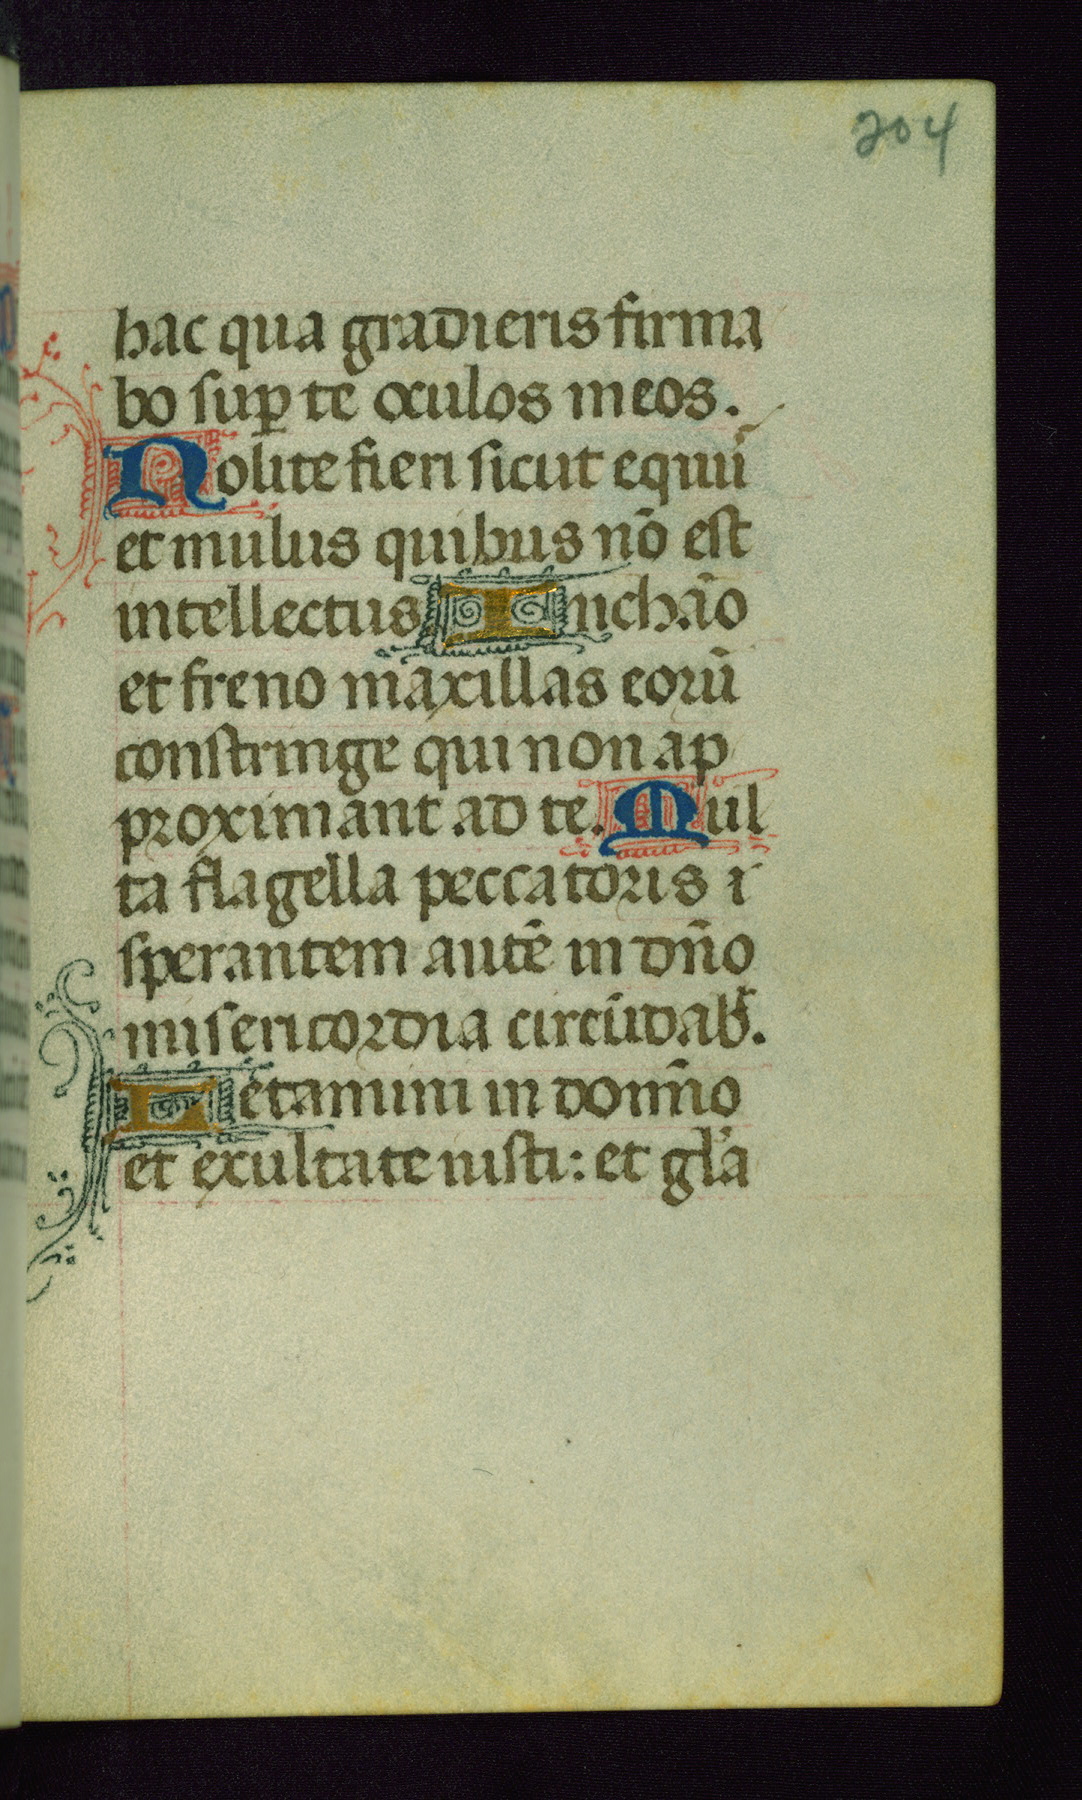 204
hac qua gradieris firma
bo suꝑ te oculos meos.
Nolite fieri sicut equū
et mulus quibus nō est
intellectus In chāo
et freno maxillas eorū
constringe qui non ap
proximant ad te. Mul
ta flagella peccatoris i
sperantem autē in dn̄o
misericordia circūdab᷑.
Letamini in domı̄no
et exultate iusti: et gl̓a